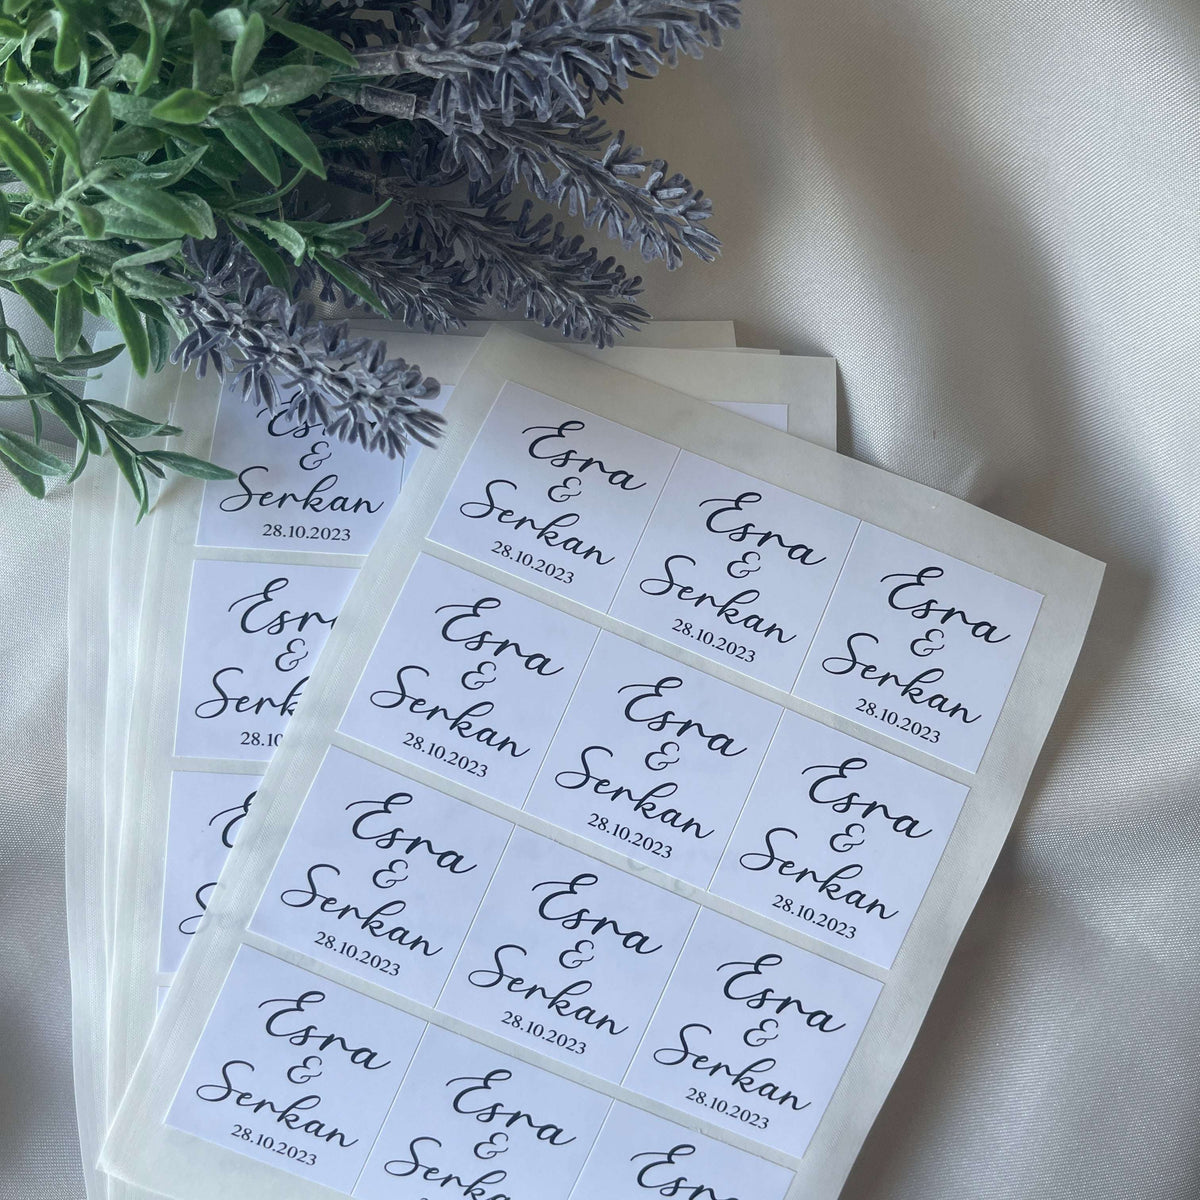 Esra
&
Serkan
28.10.2023
Esra
&
Serkan
28.10.2023
Esra
&
Serkan
28.10.2023
Esra
&
Serkan
28.10.2023
Esra
&
Serkan
28.10.2023
Esra
&
Serkan
28.10.2023
Esra
&
Serkan
28.10.2023
Esra
&
Serkan
28.10.2023
Esra
&
Serkan
28.10.2023
Esra
&
Serkan
28.10.2023
Esra
&
Serkan
Esra
&
Serkan
28.10.2023
Esra
&